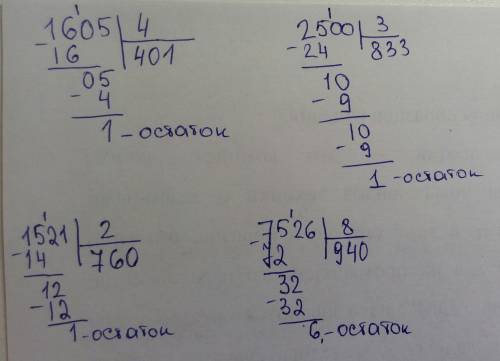 1605 4
- 16 401
05
- 4
1 - остаток
2500 3
- 24 833
10
- 9
10
- 9
1 - остаток
1521 2
- 14 760
12
- 12
1 - остаток
7526 8
- 72 940
32
- 32
6 - остаток